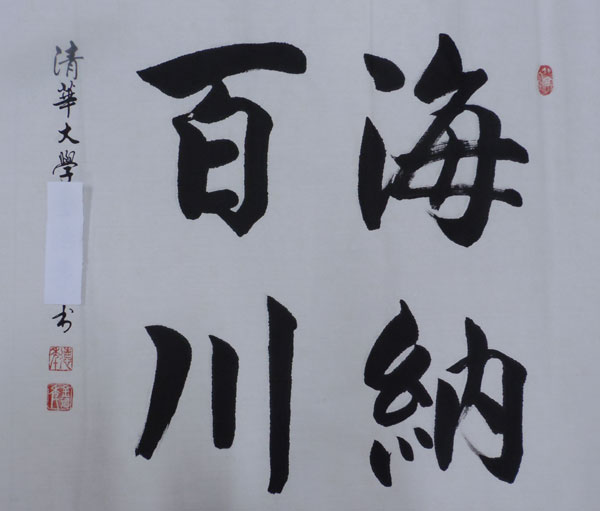 海納
百川
清華大學
书